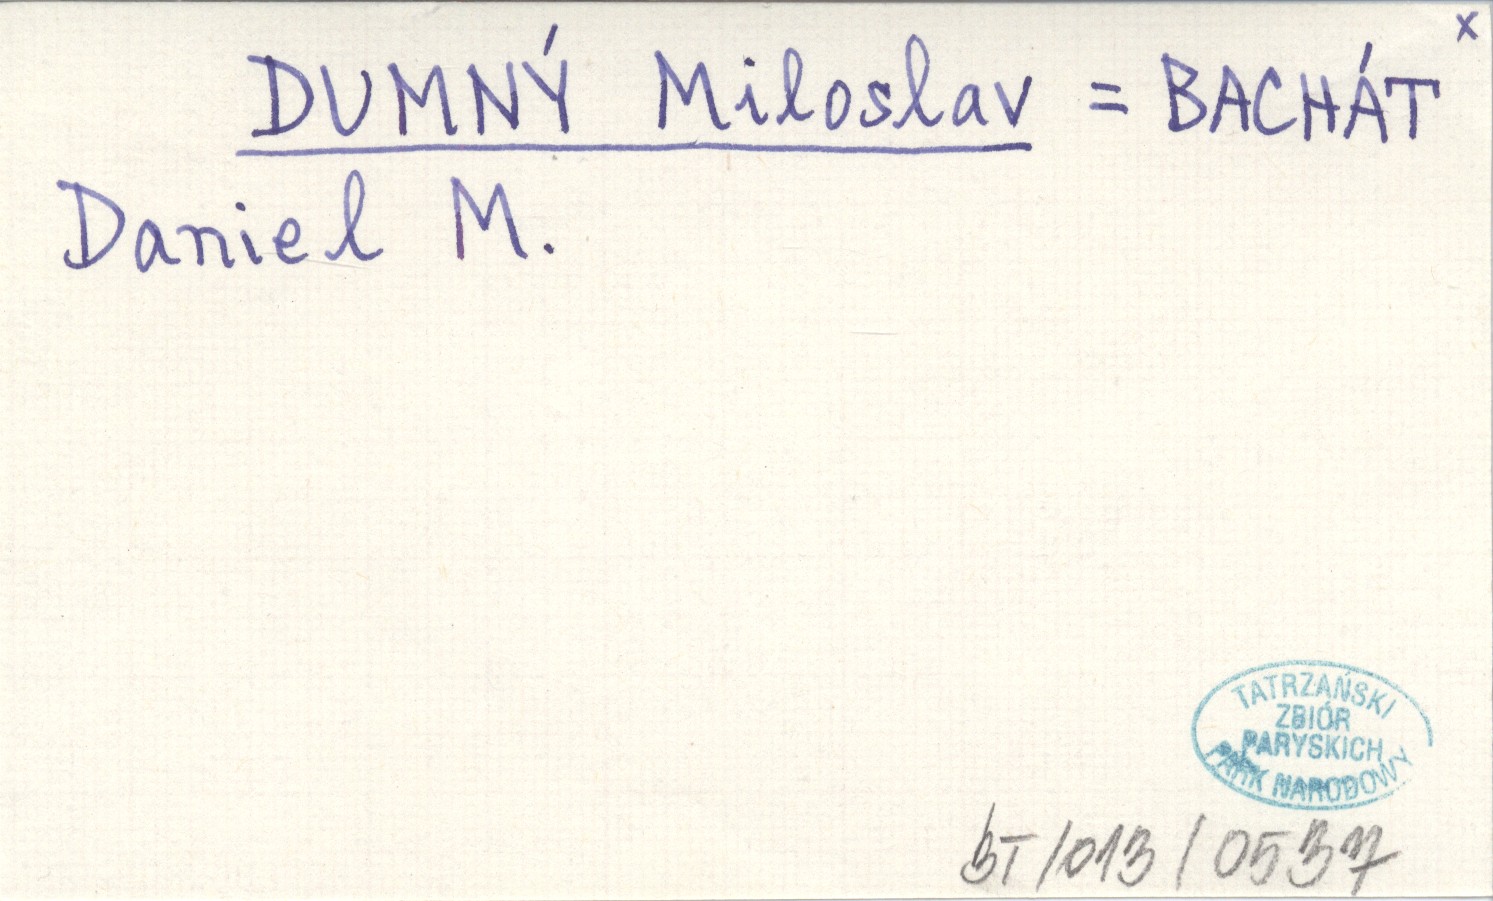 x
DUMNÝ Miloslav = BACHÁT
Daniel M.
TATRZAŃSKI
ZBIÓR
PARYSKICH
PARK NARODOWY
BT/013/0537